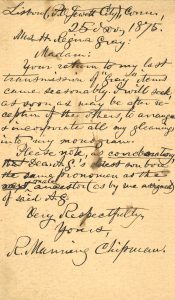 Lisbon (Jewett City), Conn.,
25 Nov., 1875.
Miss H. Regina
Gray:
Madam:
Your return to my last
transmission of "Gray" items
came seasonably. I will seek,
as soon as may be after re-
ception of the others, to arrange
& incorporate all my gleanings
into my monogram.
Please note, is
that Dea. A. G.'s best son bore
the same pronomen as the
ancestor (as by us assigned)
of said A. G.
Very Respectfully,
Yours,
R. Manning Chipman.